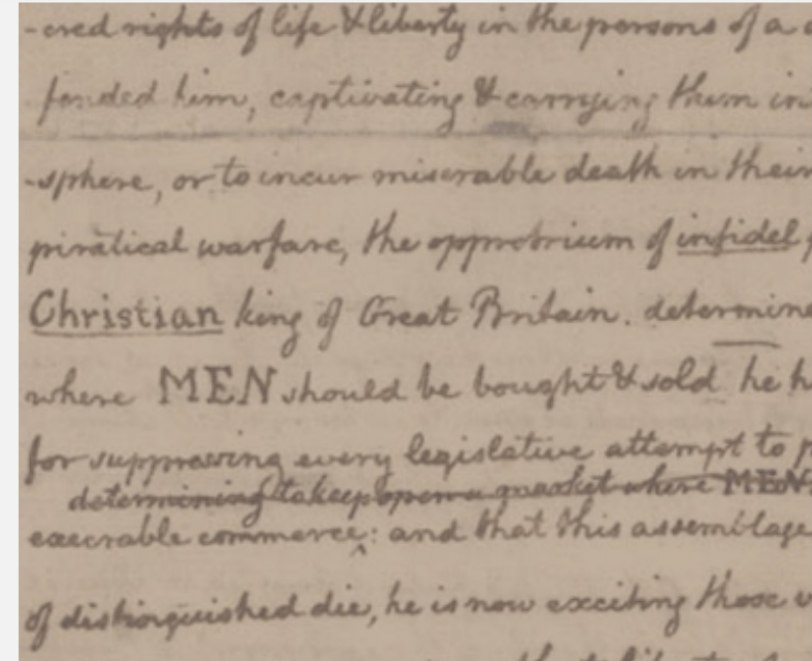 -cred rights of life & liberty in the persons of a
fended him, captivating & carrying them in
-sphere, or to incur miserable death in their
piratical warfare, the opprobrium of infidel
Christian king of Great Britain. determine
where MEN should be bought & sold he h
for suppressing every legislative attempt to p
determining to keep open a market where MEN
execrable commerce: and that this assemblage
of distinguished die, he is now exciting those
that libert